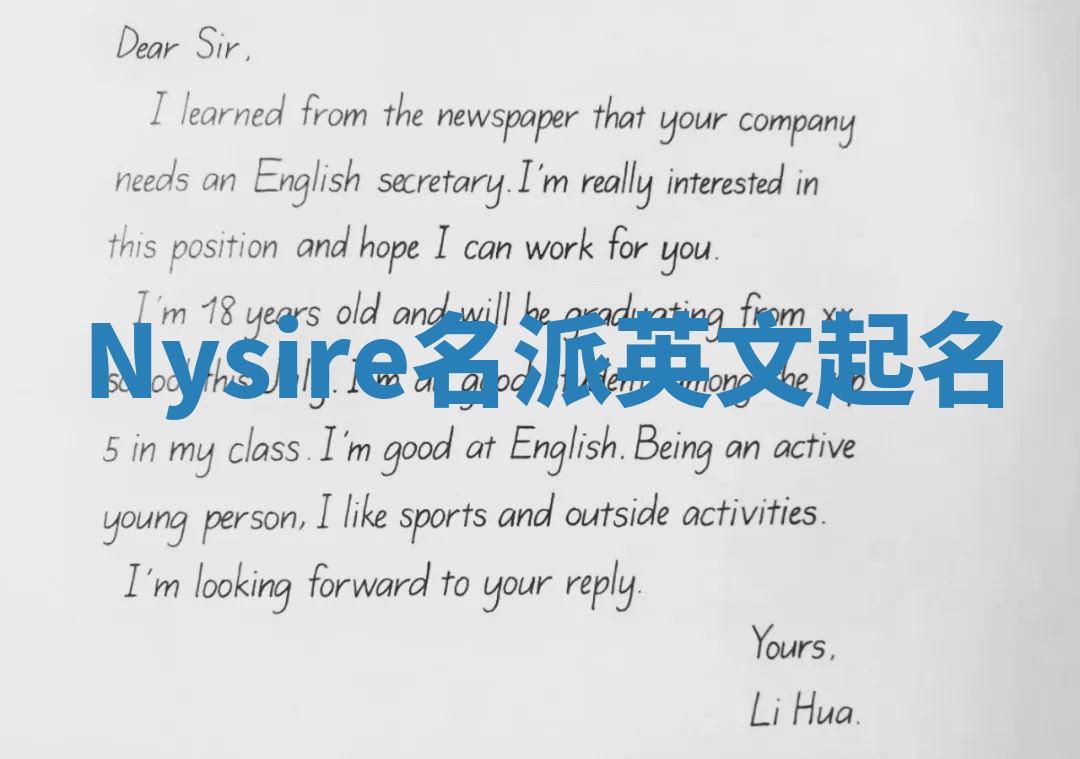 Dear Sir,
I learned from the newspaper that your company
needs an English secretary. I'm really interested in
this position and hope I can work for you.
I'm 18 years old and will be graduating from xx
Nysire名派英文起名
school this July. I'm a good student among the top
5 in my class. I'm good at English. Being an active
young person, I like sports and outside activities.
I'm looking forward to your reply.
Yours,
Li Hua.